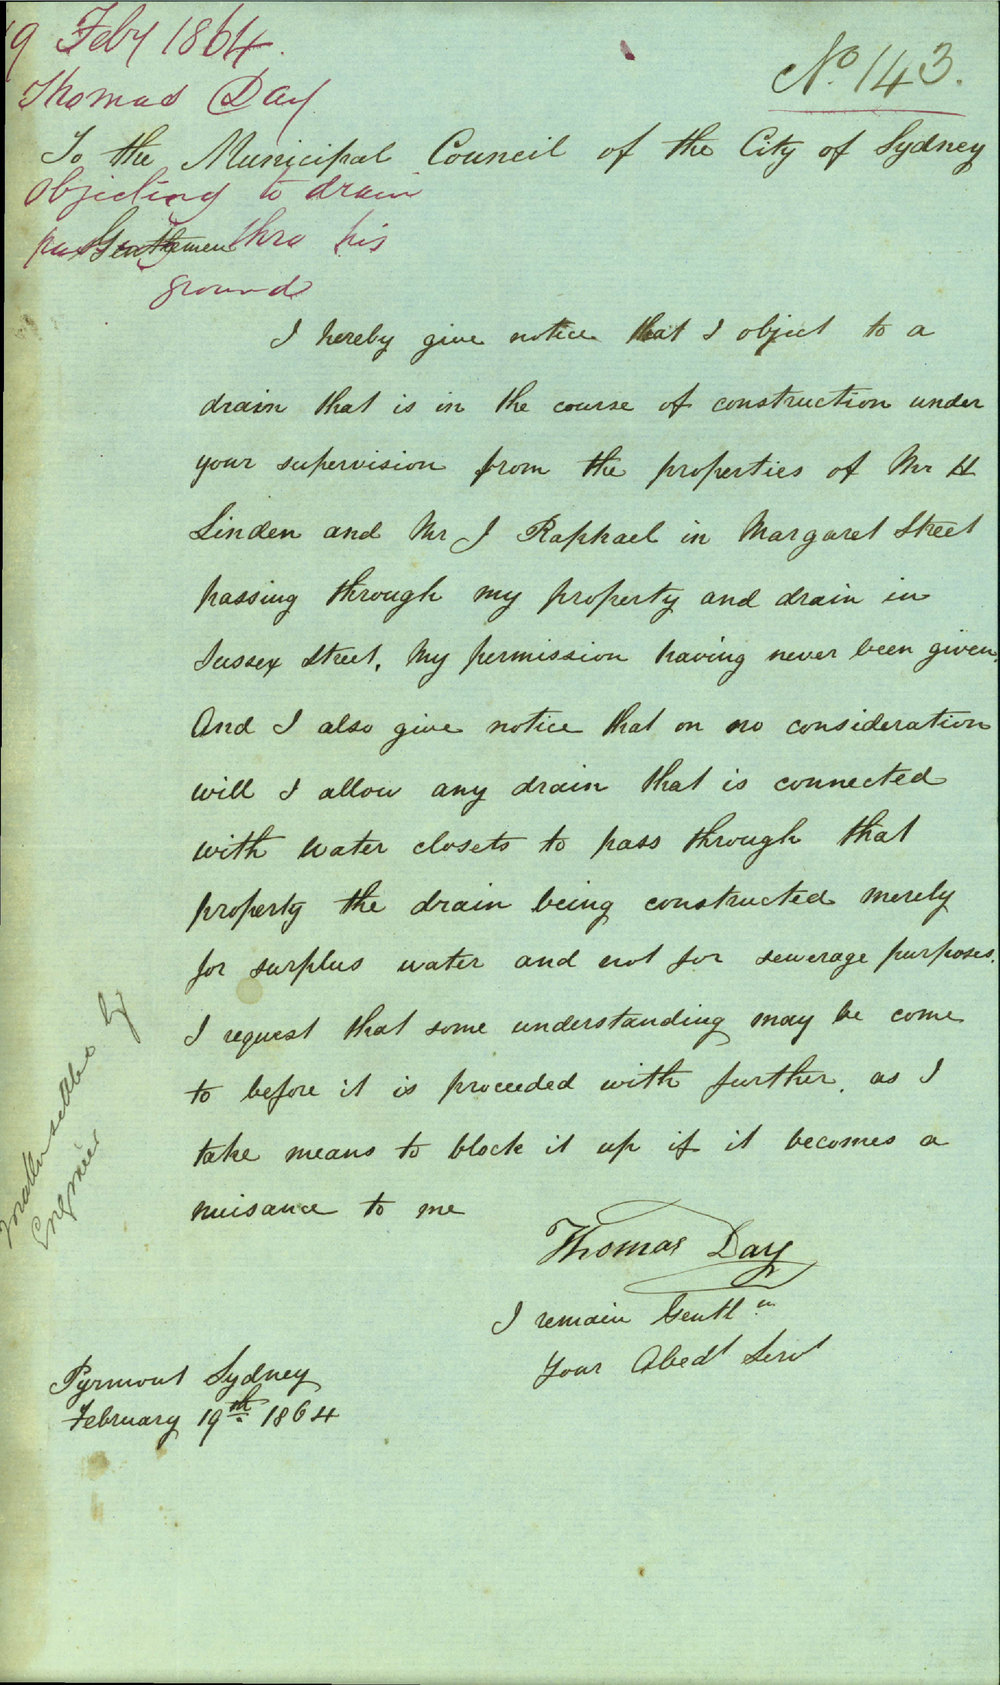 19 Feby 1864.
No. 143.
Thomas Day
To the Municipal Council of the City of Sydney
Objecting to drain
Gentlemen
pass thro his
ground
I hereby give notice that I object to a
drain that is in the course of construction under
your supervision from the properties of Mr H
Linden and Mr J Raphael in Margaret Street
passing through my property and drain in
Sussex Street, My permission having never been given.
And I also give notice that on no consideration
will I allow any drain that is connected
with water closets to pass through that
property the drain being constructed merely
for surplus water and not for sewerage purposes.
I request that some understanding may be come
to before it is proceeded with further. as I
take means to block it up if it becomes a
nuisance to me
Thomas Day
I remain Gentln
Your Obedt Servt
Pyrmont Sydney
February 19th 1864
matter settled by
Engineer